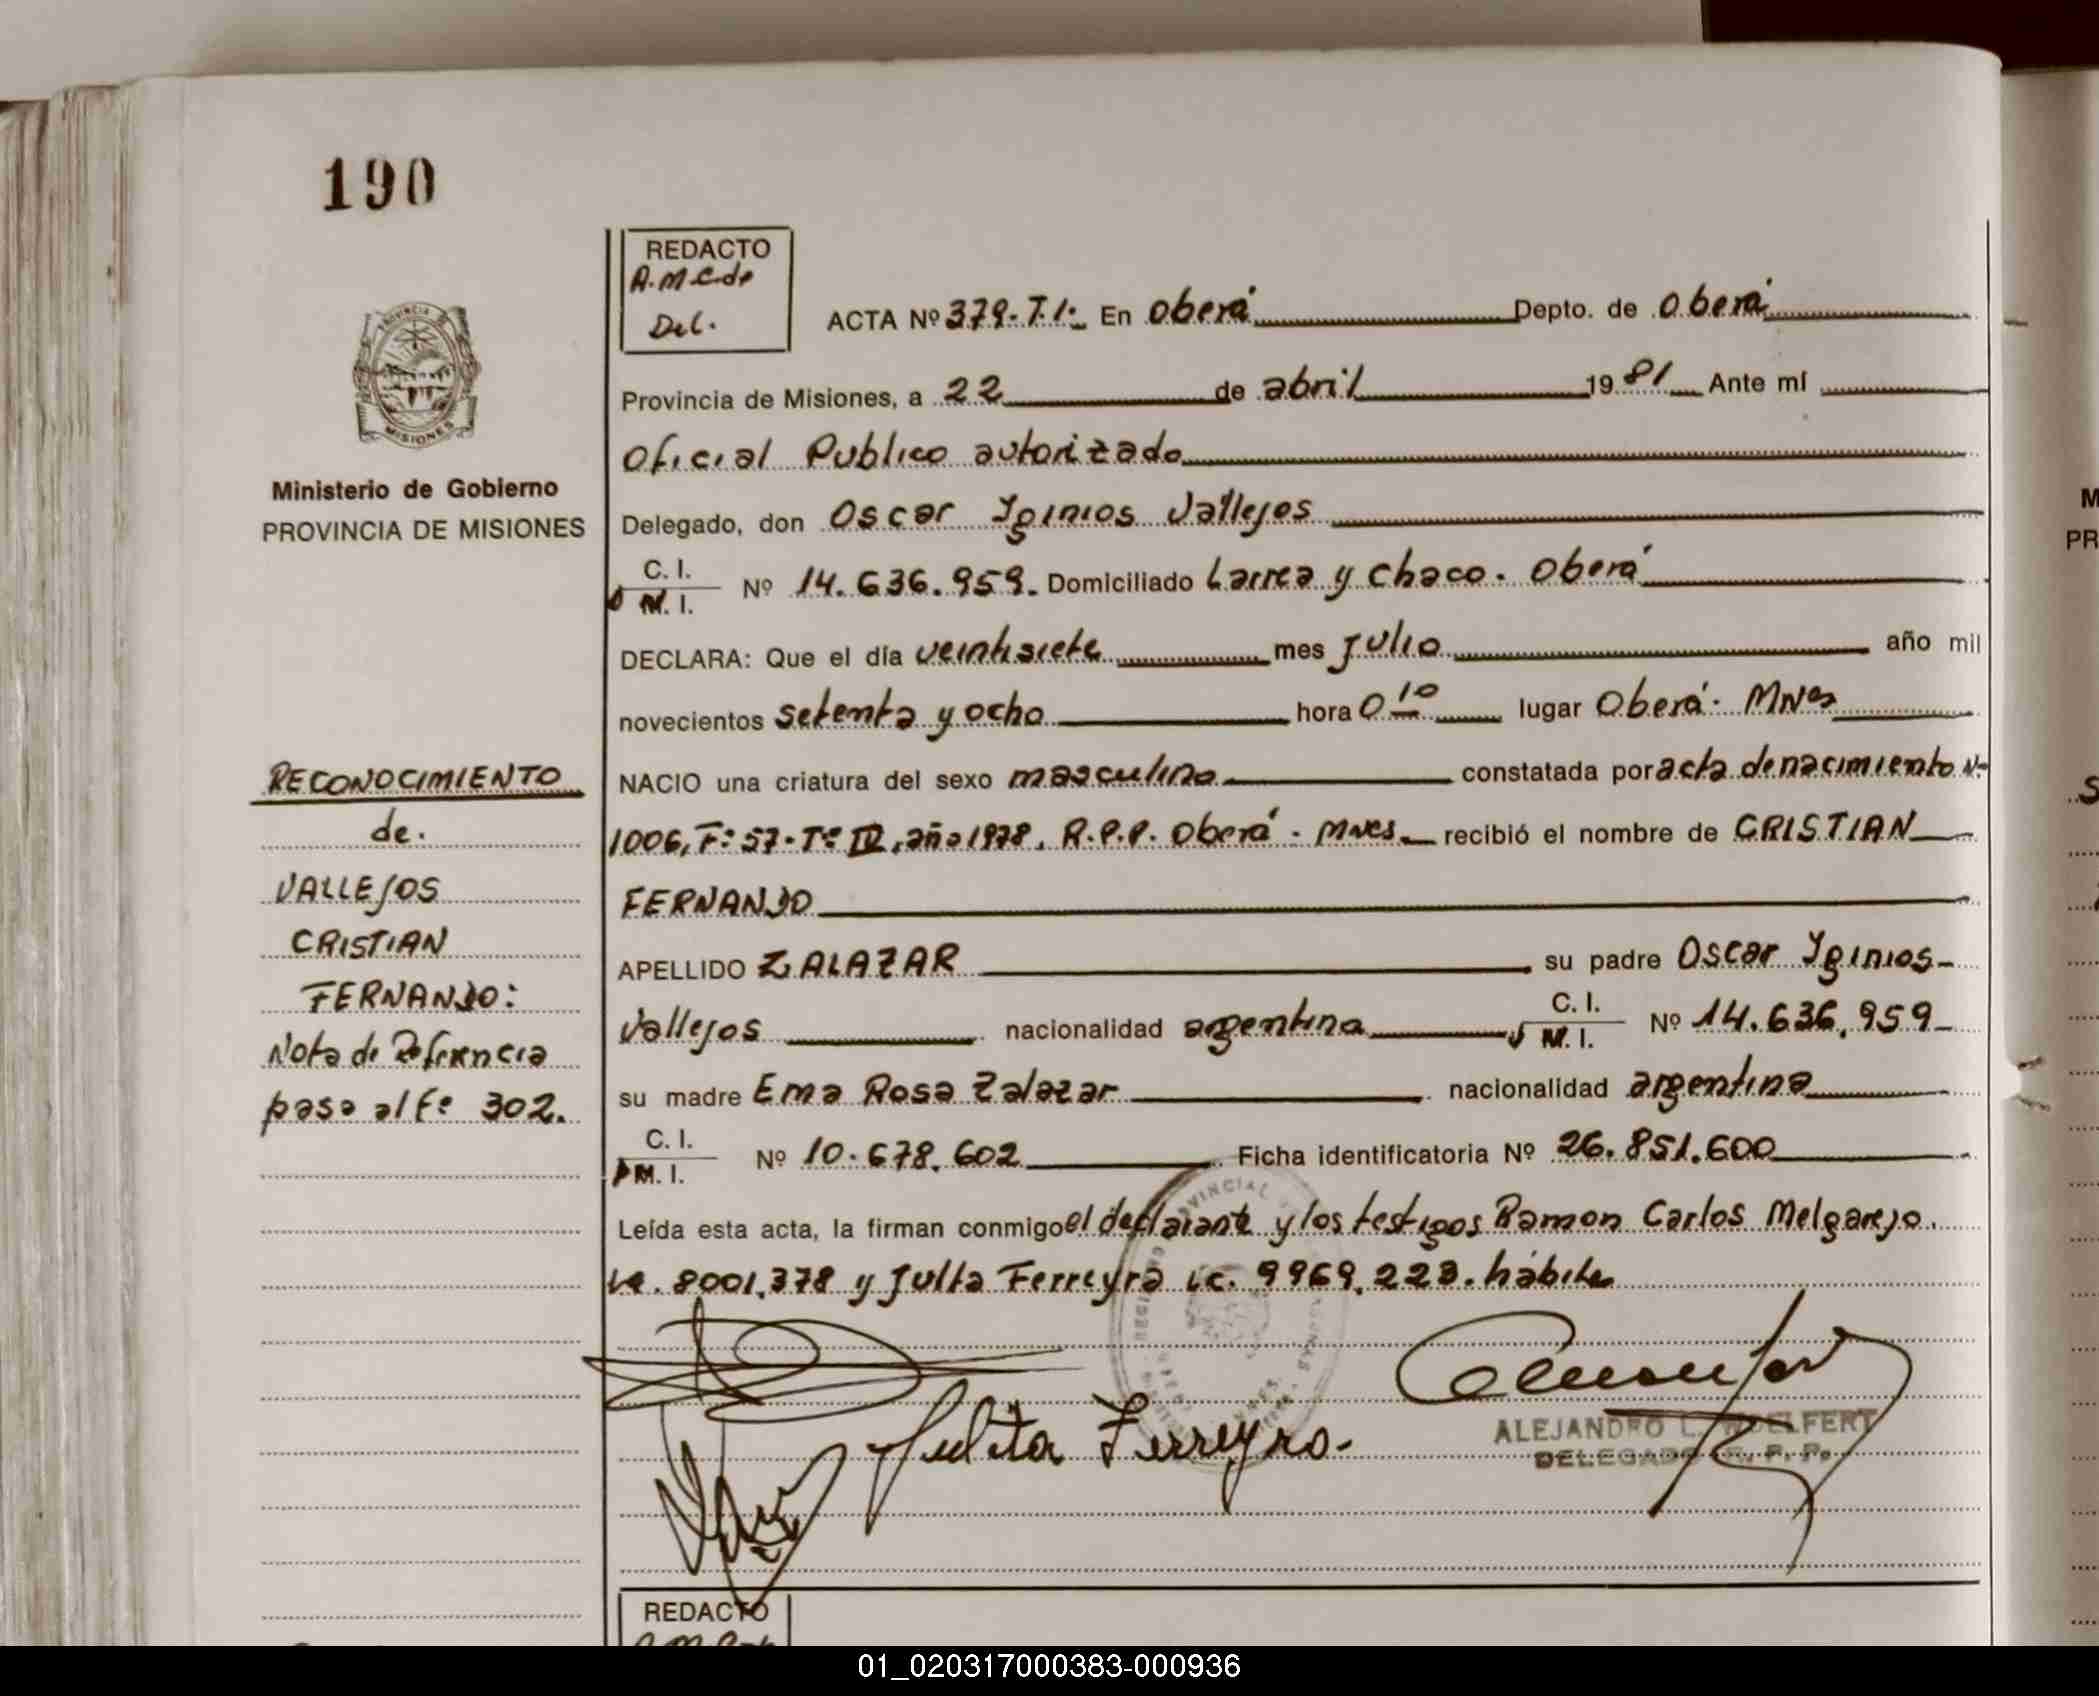 190
REDACTO
A.M.C.de
Del.
ACTA Nº 379-T.I. En Oberá Depto. de Oberá
Provincia de Misiones, a 22 de abril 1981 Ante mí
Oficial Publico autorizado
Delegado, don Oscar Iginios Vallejos
C. I.
M. I. Nº 14.636.959. Domiciliado Larrea y Chaco. Oberá
DECLARA: Que el día veintisiete mes Julio año mil
novecientos setenta y ocho hora 0 10 lugar Oberá. Mnes
NACIO una criatura del sexo masculino constatada por acta de nacimiento Nº
1006, Fº 57-Tº III, año 1978, R.P.P. Oberá - Mnes recibió el nombre de CRISTIAN
FERNANDO
APELLIDO ZALAZAR su padre Oscar Iginios
Vallejos nacionalidad argentina C. I. M. I. Nº 14.636.959
su madre Ema Rosa Zalazar nacionalidad argentina
C. I.
M. I. Nº 10.678.602 Ficha identificatoria Nº 26.851.600
Leída esta acta, la firman conmigo el declarante y los testigos Ramon Carlos Melgarejo.
Le. 8001.378 y Julta Ferreyra Lc. 9969.223. hábiles
Julita Ferreyra.
ALEJANDRO L. WOELFERT
DELEGADO R. P. P.
MISIONES
Ministerio de Gobierno
PROVINCIA DE MISIONES
RECONOCIMIENTO
de.
VALLEJOS
CRISTIAN
FERNANDO:
Nota de Referencia
pasa al Fº 302.
REDACTO
01_020317000383-000936